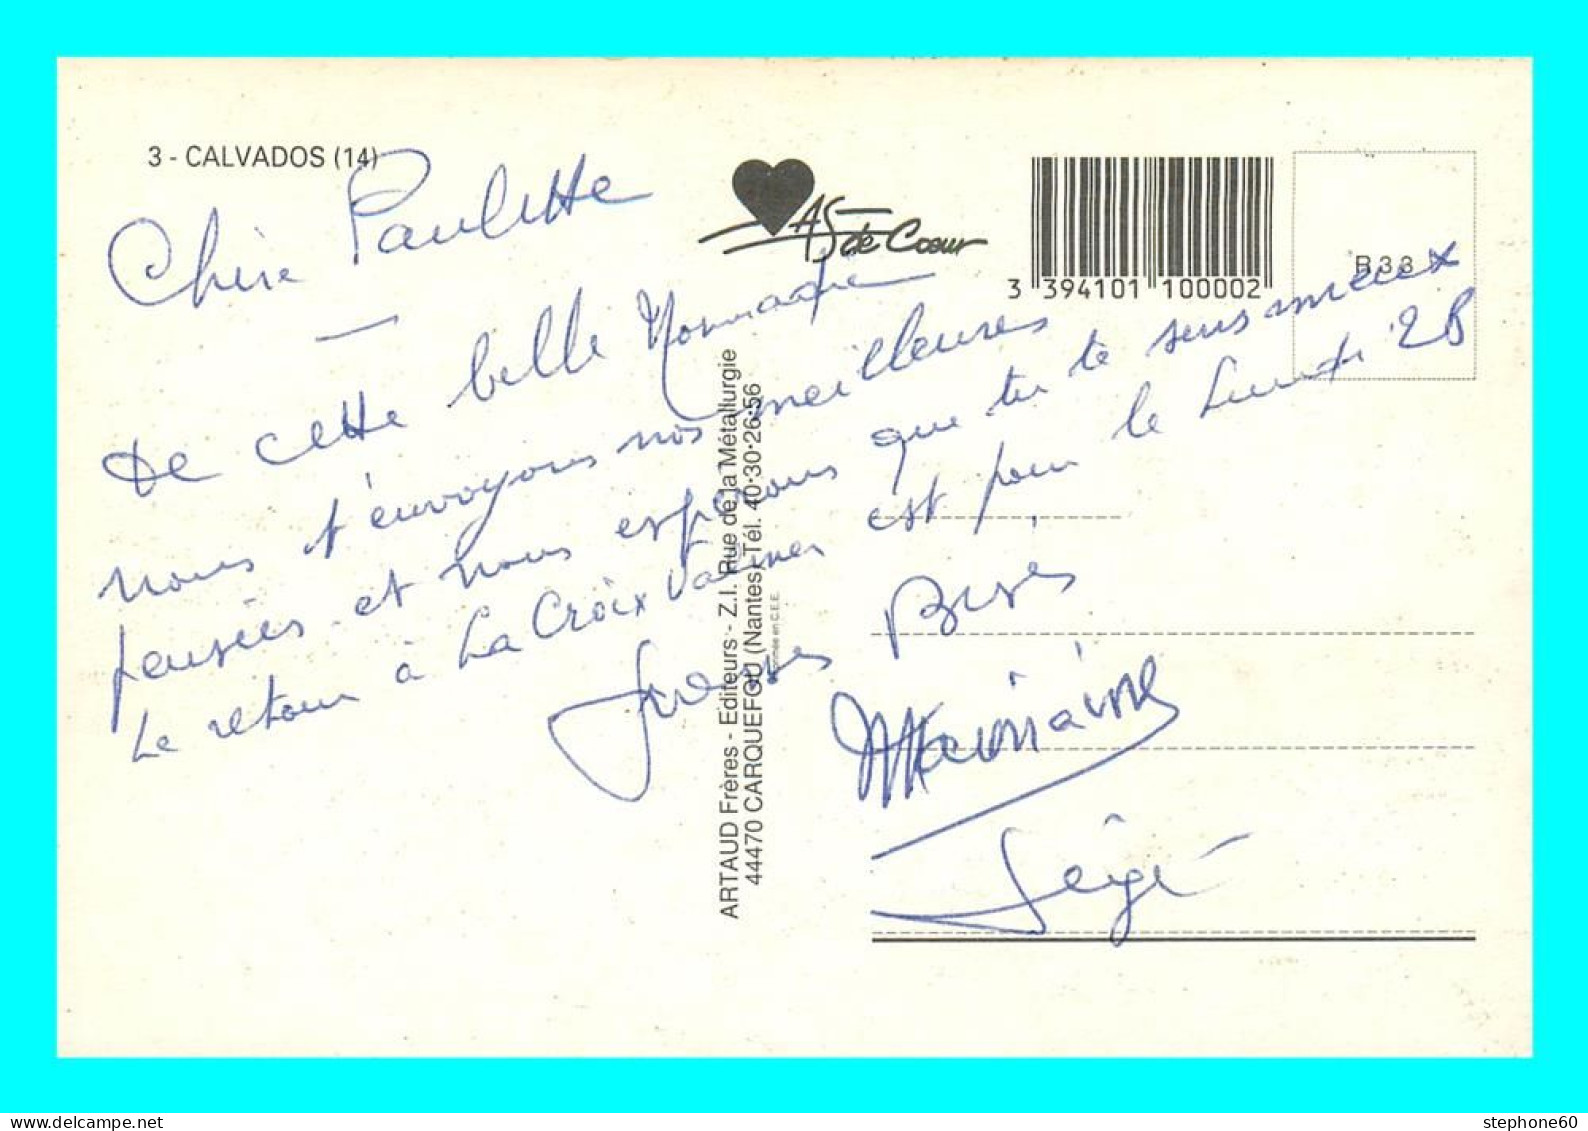 3 - CALVADOS (14)
AS de Cœur
3 394101 100002
B 3 3
Chère Paulette
De cette belle Normandie
nous t'envoyons nos meilleures
pensées et nous espérons que tu te sens mieux
Le retour à La Croix Valmer est pour le Lundi 28
Grosses Bises
Serge
ARTAUD Frères - Editeurs - Z.I. Rue de la Métallurgie
44470 CARQUEFOU (Nantes) Tél. 40·30·26·56
en C.E.E.
stephone60